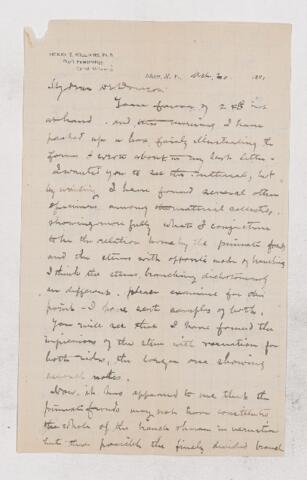 HENRY S. WILLIAMS, PH. D.
Ithaca, N. Y.,
188
My dear Dr Dawson
Your favor of 24th inst
at hand. and this morning I have
packed up a box, fairly illustrating the
forms I wrote about in my last letter.
I wanted you to see the material, but
by winding I have found several other
specimens among the material collected,
showing more fully what I conjecture
to be the relation borne by the pinnate fronds
and the stems with opposite mode of branching
I think the stems branching dichotomously
are different. please examine for this
point — I have sent samples of both.
You will see that I have found the
impressions of the stem with venation for
both sides, the longer one showing
several nodes.
Now, it has appeared to me that the
pinnate fronds may not have constituted
the whole of the
but that possibly the finely divided branch